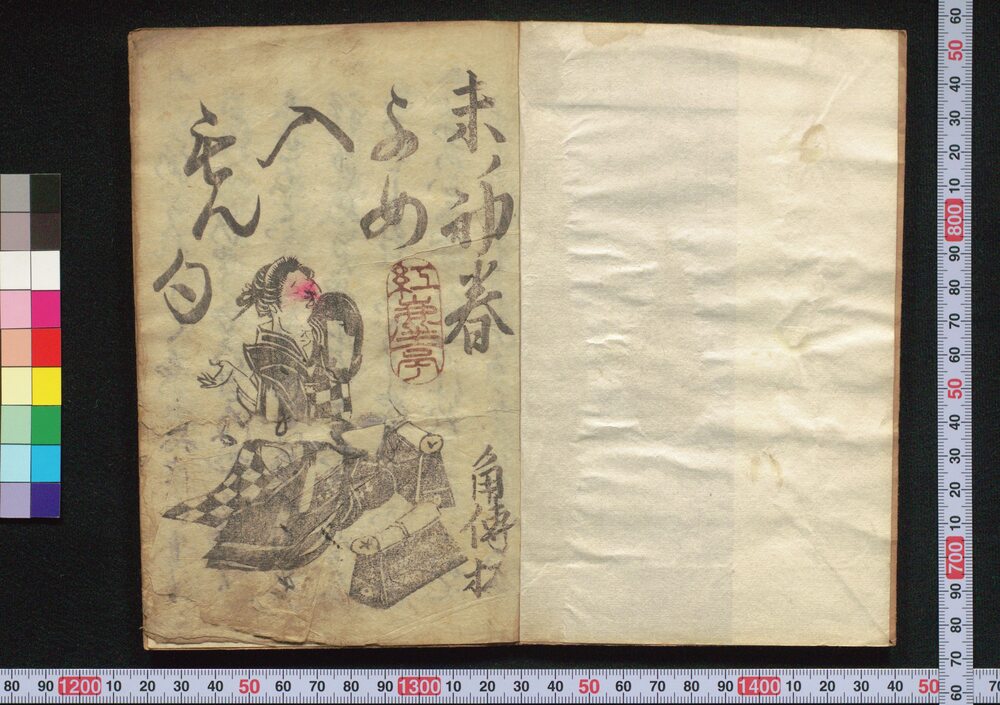 未ノ初春
よめ
入
もん
句
角傳板
60 50 40 30 20 10 800 90 80 70 60 50 40 30 20 10 700 90 80 70 60
80 90 1200 10 20 30 40 50 60 70 80 90 1300 10 20 30 40 50 60 70 80 90 1400 10 20 30 40 50